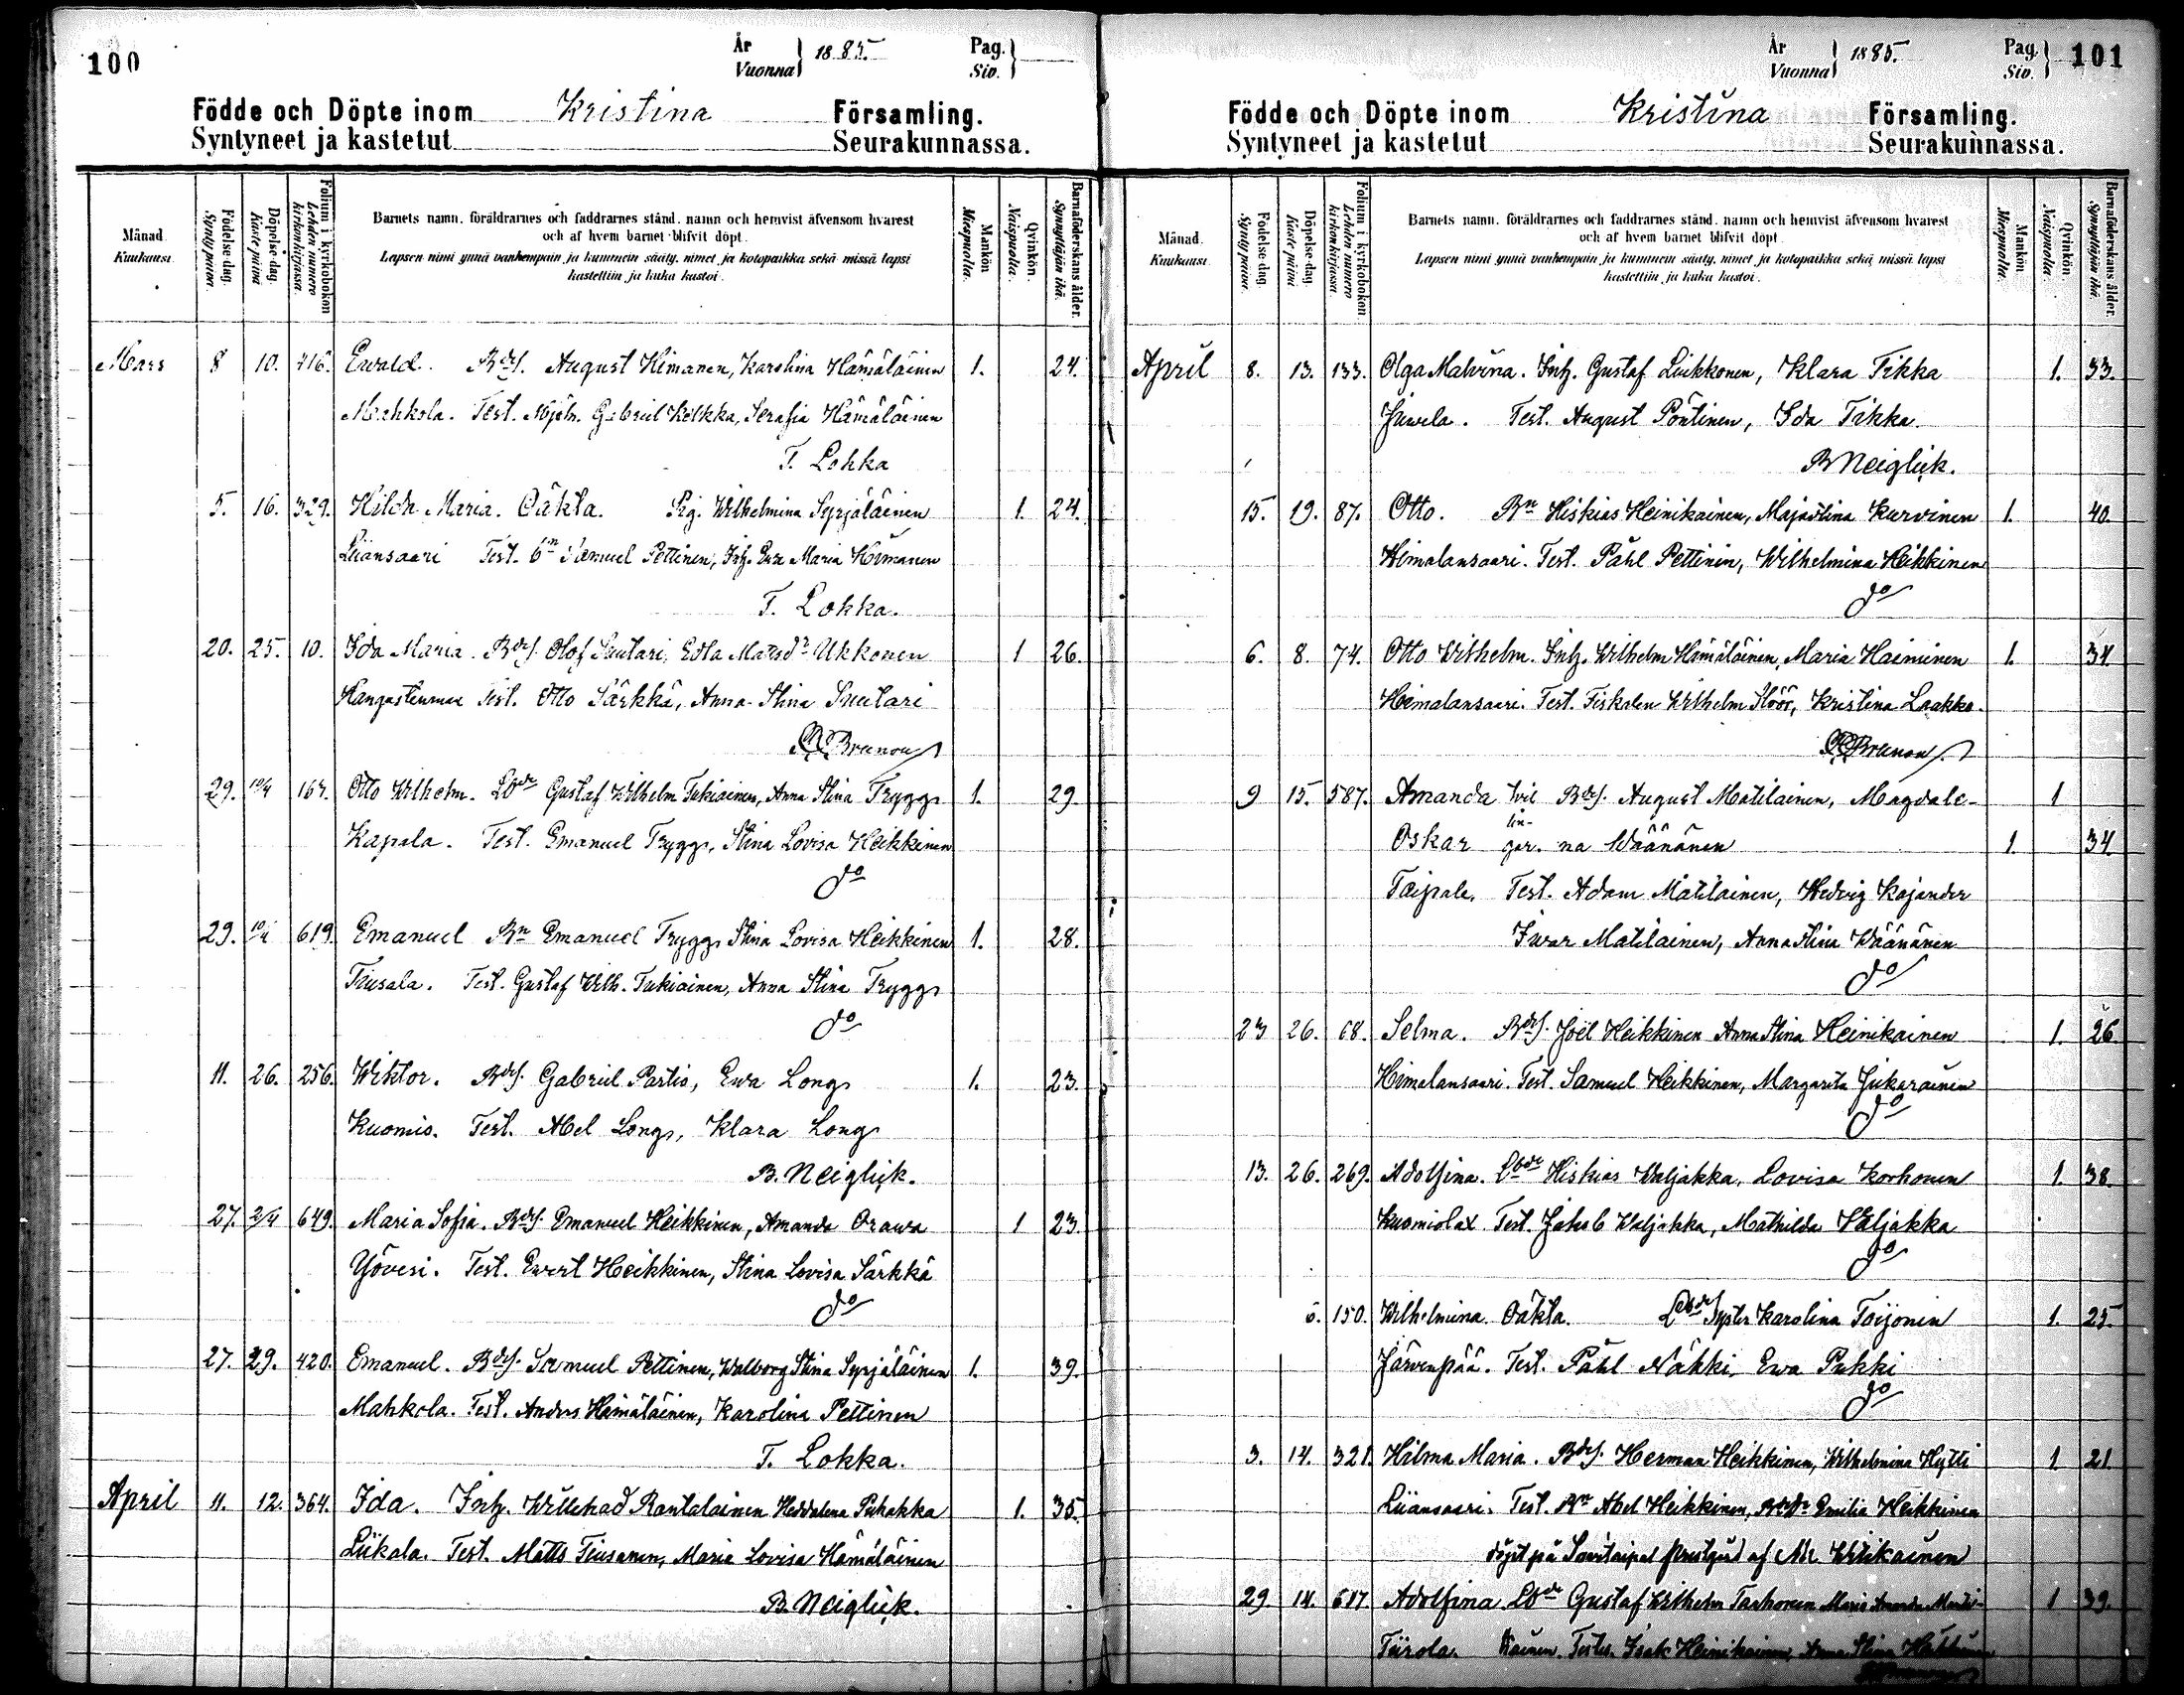 100
År
Vuonna
1885.
Pag.
Siv.
Födde och Döpte inom Kristina Församling.
Syntyneet ja kastetut Seurakunnassa.
Månad.
Kuukausi.
Födelse-dag.
Syntypäivä.
Döpelse-dag.
Kastepäivä
Folium i kyrkoboken
Lehden numero
kirkonkirjassa.
Barnets namn, föräldrarnes och faddrarnes stånd, namn och hemvist äfvensom hvarest
och af hvem barnet blifvit döpt.
Lapsen nimi ynnä vanhempain ja kummein sääty, nimet ja kotopaikka sekä missä lapsi
kastettiin ja kuka kastoi.
Mankön
Miespuolia.
Qvinkön.
Naispuolia.
Barnaföderskans ålder.
Synnyttäjän ikä.
Mars 8 10. 416. Ewald. Bdes. August Himanen, Karolina Hämäläinen 1. 24.
Mahkola. Test. Mjöln. Gabriel Kelkka, Serafia Hämäläinen
T. Lohka
5. 16. 329. Hilda Maria. Oäkta. Pig. Wilhelmina Syrjäläinen 1. 24.
Liiansaari Test. Bn Samuel Pettinen, Inh. Eva Maria Himanen
T. Lokka.
20. 25. 10. Ida Maria. Bdes. Olof Suutari, Edla Matsdr Ukkonen 1 26.
Test. Otto Särkkä, Anna Stina Suutari
Brunou
29. 10/4 167. Otto Wilhelm. Lbde Gustaf Wilhelm Tukiainen, Anna Stina Trygg 1. 29.
Kapala. Test. Emanuel Trygg, Stina Lovisa Heikkinen
do
29. 10/4 619. Emanuel Bn Emanuel Trygg, Stina Lovisa Heikkinen 1. 28.
Tiusala. Test. Gustaf Wilh. Tukiainen, Anna Stina Trygg
do
11. 26. 256. Wiktor. Bdes. Gabriel Partio, Ewa Long 1. 23.
Kuomio. Test. Abel Long, Klara Long
B. Neiglick.
27. 2/4 649. Maria Sofia. Bdes. Emanuel Heikkinen, Amanda Orawa 1 23.
Yövesi. Test. Evert Heikkinen, Stina Lovisa Särkkä
do
27. 29. 420. Emanuel. Bdes. Samuel Pettinen, Walborg Stina Syrjäläinen 1. 39.
Mahkola. Test. Anders Hämäläinen, Karolina Pettinen
T. Lokka.
April 11. 12. 364. Ida. Inh. Willehad Rantalainen Heddalena Puhakka 1. 35.
Liikala. Test. Matts Tiusanen, Maria Lovisa Hämäläinen
B. Neiglick.
År
Vuonna
1885.
Pag.
Siv.
101
Födde och Döpte inom Kristina Församling.
Syntyneet ja kastetut Seurakunnassa.
Månad.
Kuukausi.
Födelse-dag.
Syntypäivä.
Döpelse-dag.
Kastepäivä
Folium i kyrkoboken
Lehden numero
kirkonkirjassa.
Barnets namn, föräldrarnes och faddrarnes stånd, namn och hemvist äfvensom hvarest
och af hvem barnet blifvit döpt.
Lapsen nimi ynnä vanhempain ja kummein sääty, nimet ja kotopaikka sekä missä lapsi
kastettiin ja kuka kastoi.
Mankön
Miespuolia.
Qvinkön.
Naispuolia.
Barnaföderskans ålder.
Synnyttäjän ikä.
April 8. 13. 133. Olga Malvina. Inh. Gustaf Luikkonen, Klara Tikka 1. 33.
Juvela. Test. August Pöntinen, Ida Tikka.
B Neiglick.
15. 19. 87. Otto. Bn Hiskias Heinikainen, Majastina Kurvinen 1. 40.
Himalansaari. Test. Påhl Pettinen, Wilhelmina Heikkinen
do
6. 8. 74. Otto Wilhelm. Inh. Wilhelm Hämäläinen, Maria Haininen 1. 34
Himalansaari. Test. Fiskalen Wilhelm Höör, Kristina Laakko.
Brunou
9 15. 587. Amanda tvil Bdes. August Matilainen, Magdale- 1
Oskar lin-gar. na Wäänänen 1. 34
Taipale. Test. Adam Matilainen, Hedvig Kajander
Ivar Matilainen, Anna Stina Wäänänen
do
23 26. 68. Selma. Bdes. Joël Heikkinen Anna Stina Heinikainen 1. 26
Himalansaari. Test. Samuel Heikkinen, Margarita Jukarainen
do
13. 26. 269. Adolfina. Lbde Hiskias Waljakka, Lovisa Korhonen 1. 38.
Kuomiolax Test. Jakob Waljakka, Mathilda Waljakka
do
6. 150. Wilhelmina. Oäkta. Lbdes Syster Karolina Toijonen 1. 25.
Järvenpää. Test. Påhl Nähki Ewa Pukki
do
3. 14. 321. Hilma Maria. Bdes. Herman Heikkinen, Wilhelmina Hytti 1. 21.
Liiansaari. Test. Bn Abel Heikkinen, Emilia Heikkinen
döpt på Savitaipal prestgård af Wirikainen
29 14. 617. Adolfina Lbde Gustaf Wilhelm Tarhonen Maria Amanda 1 39.
Tiirola. Test. Isak Heinikainen, Anna Stina